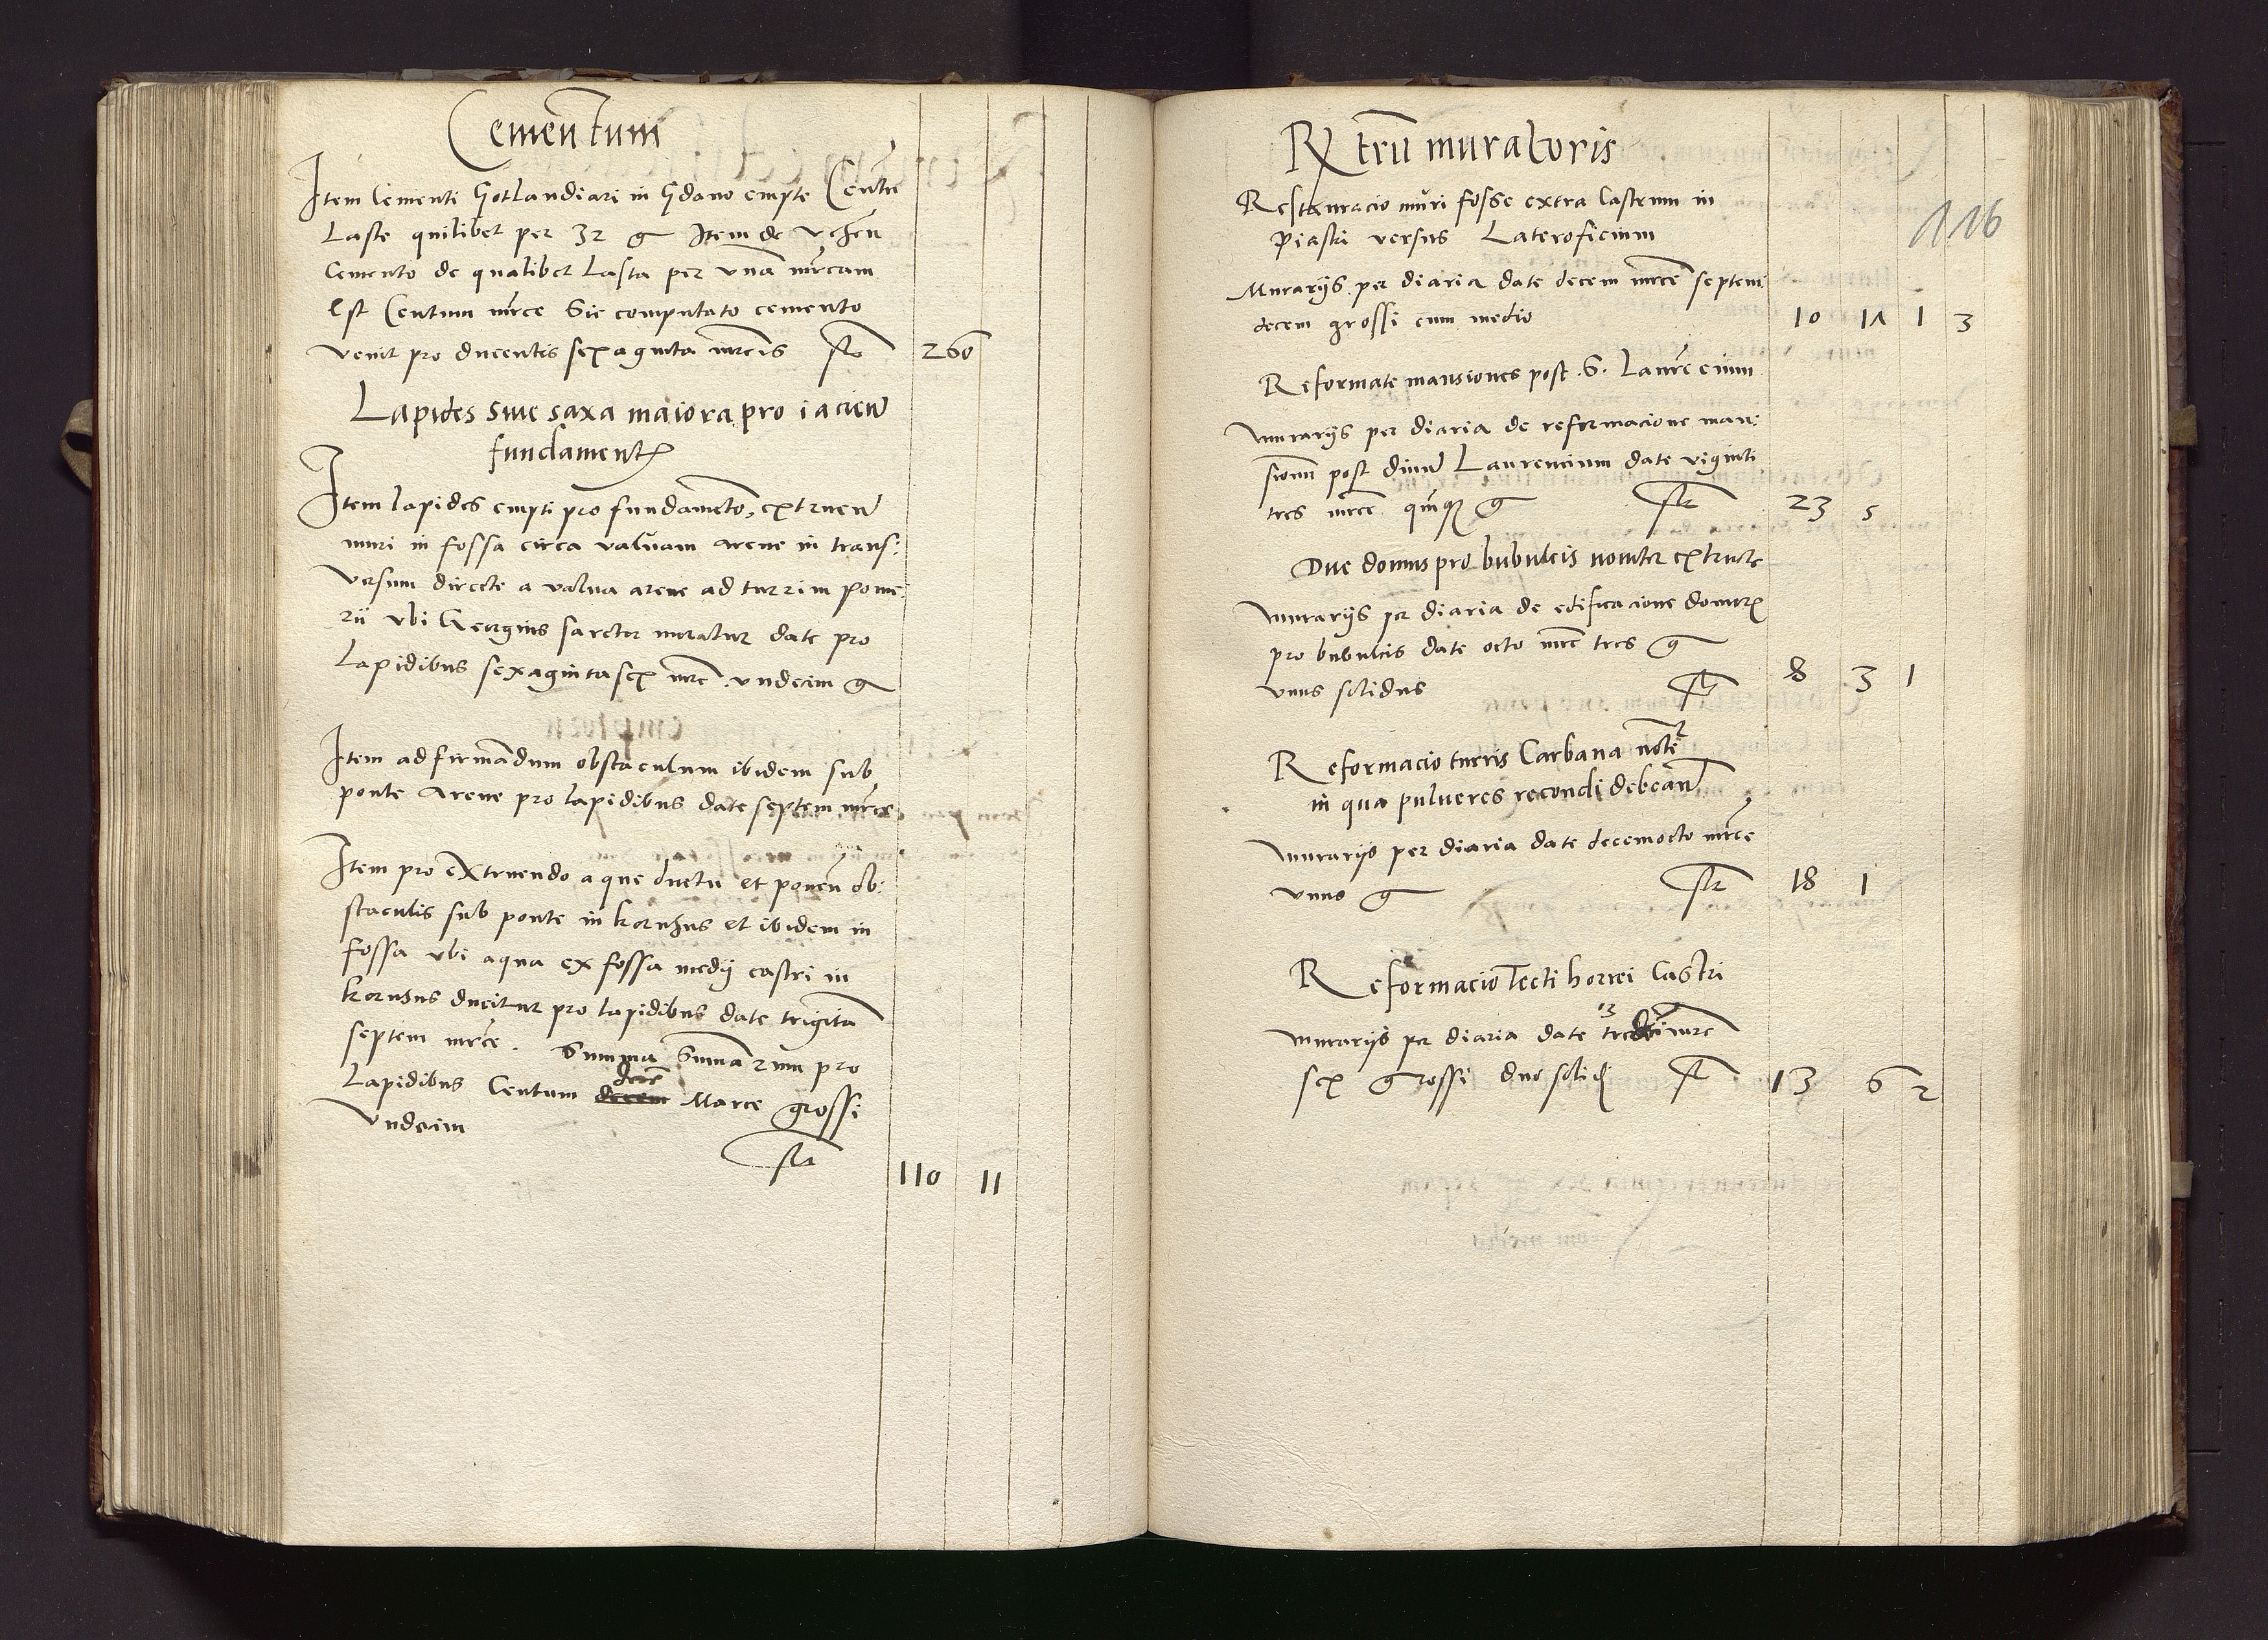 Cementum
Item Cementi Gotlandiari in Gdano empte Centu
Laste quilibet per 32 g Item de vehen
Cemento de qualibet Lasta per vna mrcam
est Centum mrce Sic computato cemento
venit pro ducentis sexaginta mrcis 260
Lapides siue saxa maiora pro iacien
fundament
Item lapides empti pro fundamento extruen
muri in fossa circa valuam arene in trans:
versum directe a valua arene ad turrim pome:
rii vbi Georgius sartor moratur date pro
Lapidibus sexagintasex mrc vndecim g
Item ad firmandum obstaculum ibidem sub
ponte Arene pro lapidibus date septem mrce
Item pro extruendo aque ductu et ponen ob:
staculis sub ponte in kornhus et ibidem in
fossa vbi aqua ex fossa medij castri in
kornhus ducitur pro lapidibus date trigita
septem mrce. Summa Sumarum pro
Lapidibus Centum dece Marce grossi
vndecim
110 11
116
Rx tru muratoris
Restauracio muri fosse extra Castrum in
piastri versus Lateroficium
Murarijs per diaria date decem mrce septem
decem grossi cum medio 10 17 1 3
Reformate mansiones post S. Laurecium
murarijs per diaria de reformacione man:
sionu post diuu Laurencium date viginti
tres mrce quiq g 23 5
Due domus pro bubulcis nouiter extructe
murarijs per diaria de edificacione domur
pro bubulcis date octo mrc tres g
vnus solidus 8 3 1
Reformacio turris Carbana
in qua pulueres recondi debeant
murarijs per diaria date decemocto mrce
vnus g 18 1
Reformacio Tecti horrei Castri
13
murarijs per diaria date mrc
sex grossi duo solidi 13 6 2